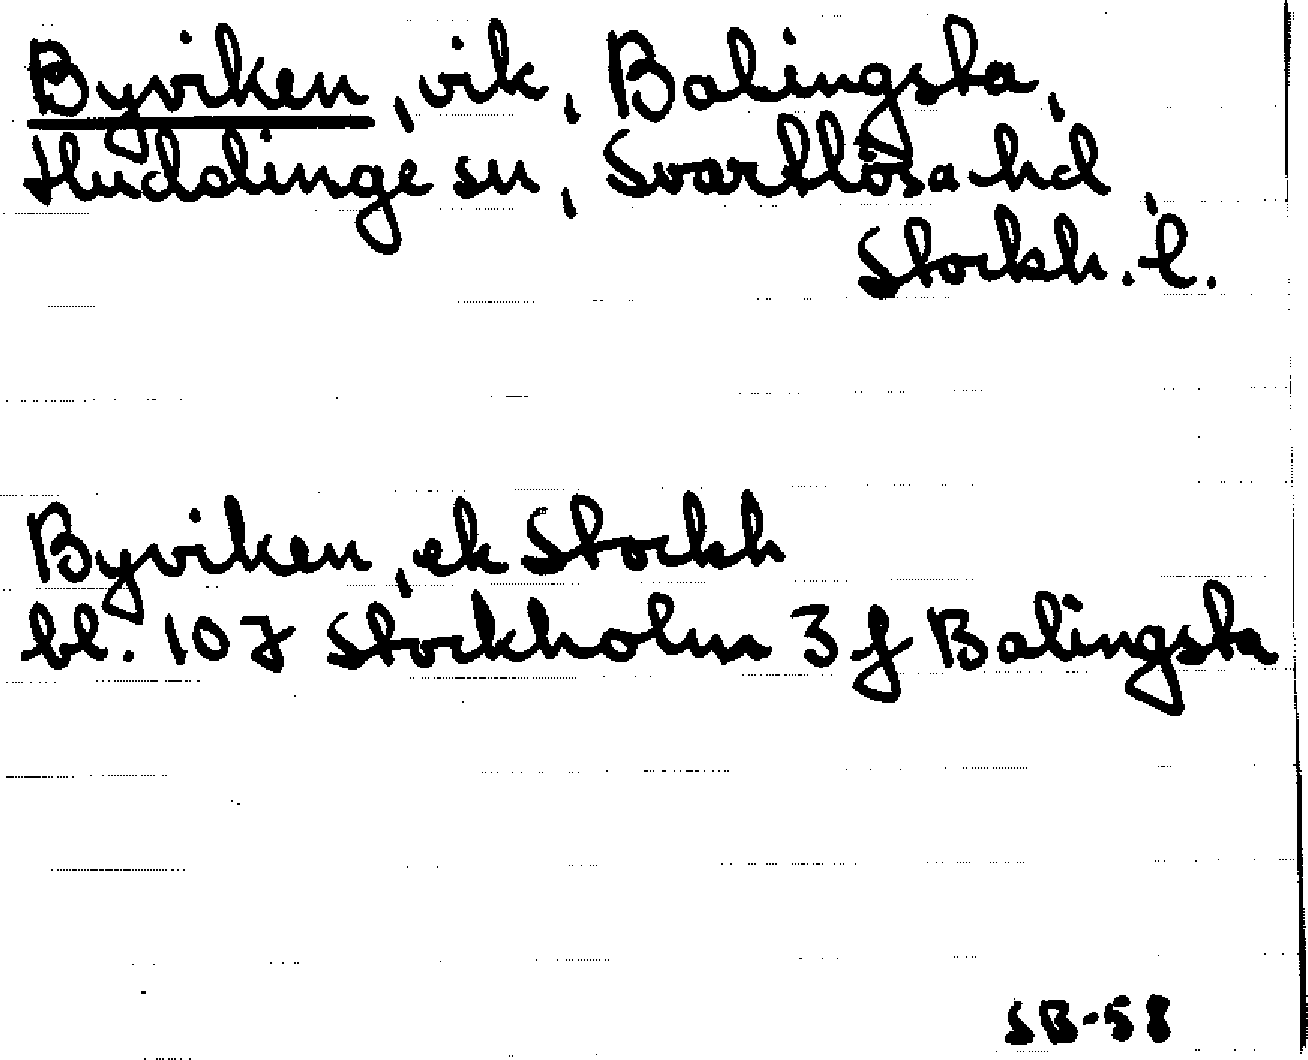 Byviken, vik, Balingsta,
Huddinge sn, Svartlösa hd,
Stockh. l.
Byviken, ek Stockh
bl. 10 7 Stockholm 3 f Balingsta
SB-58